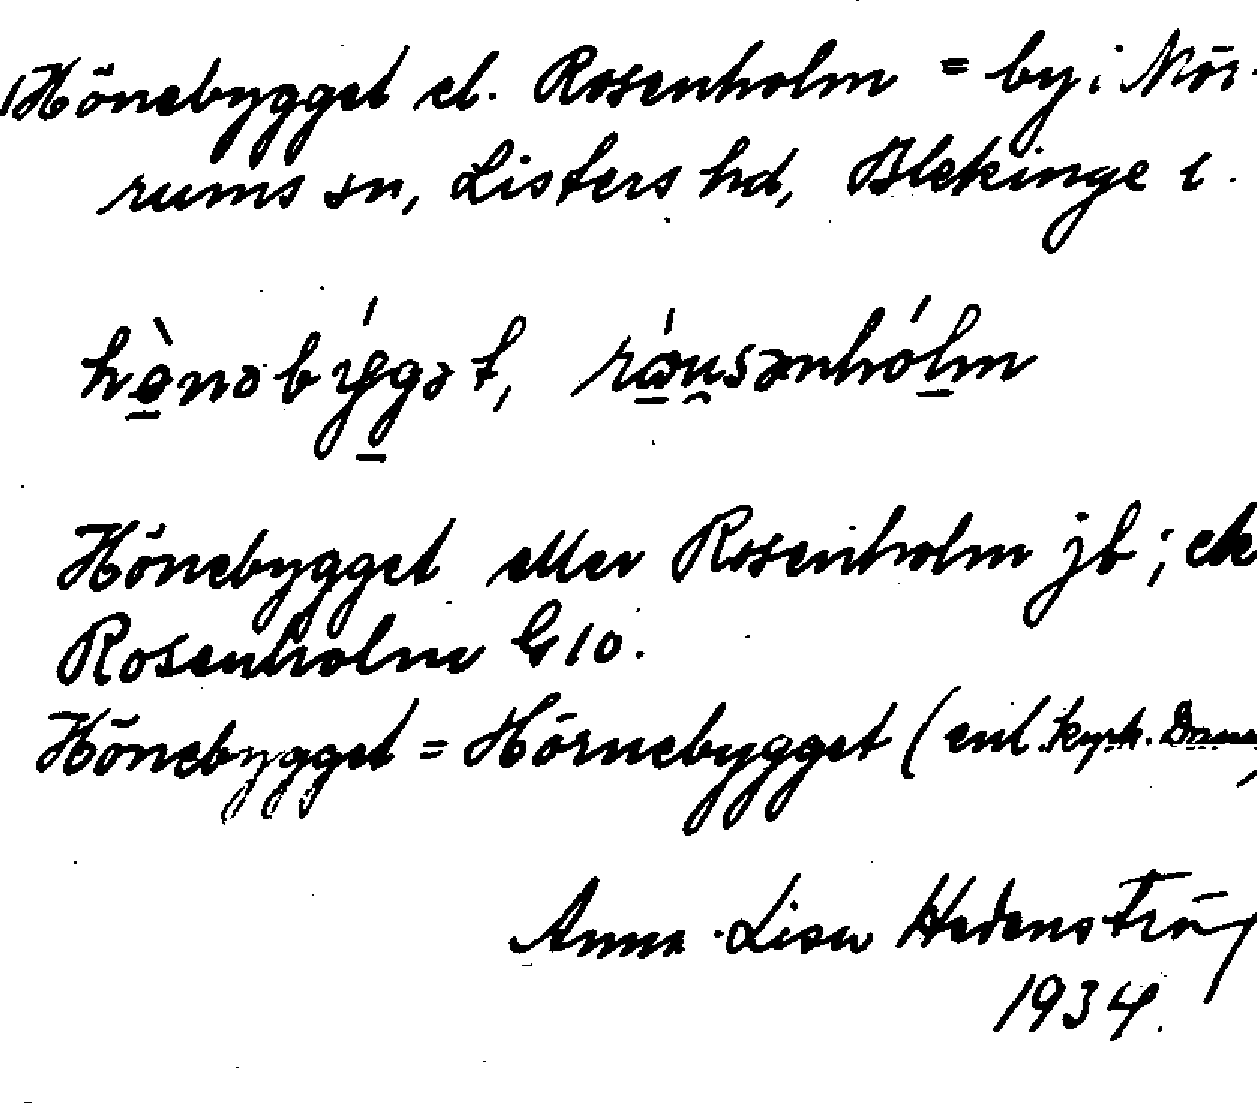 Hönebygget el. Rosenholm = by i Mör-
rums sn, Listers hd, Blekinge l.
Hönebygget eller Rosenholm jb; ek
Rosenholm G 10.
Hönebygget = Hörnebygget (enl. kyrk.
Anna-Lisa Hedenström
1934.